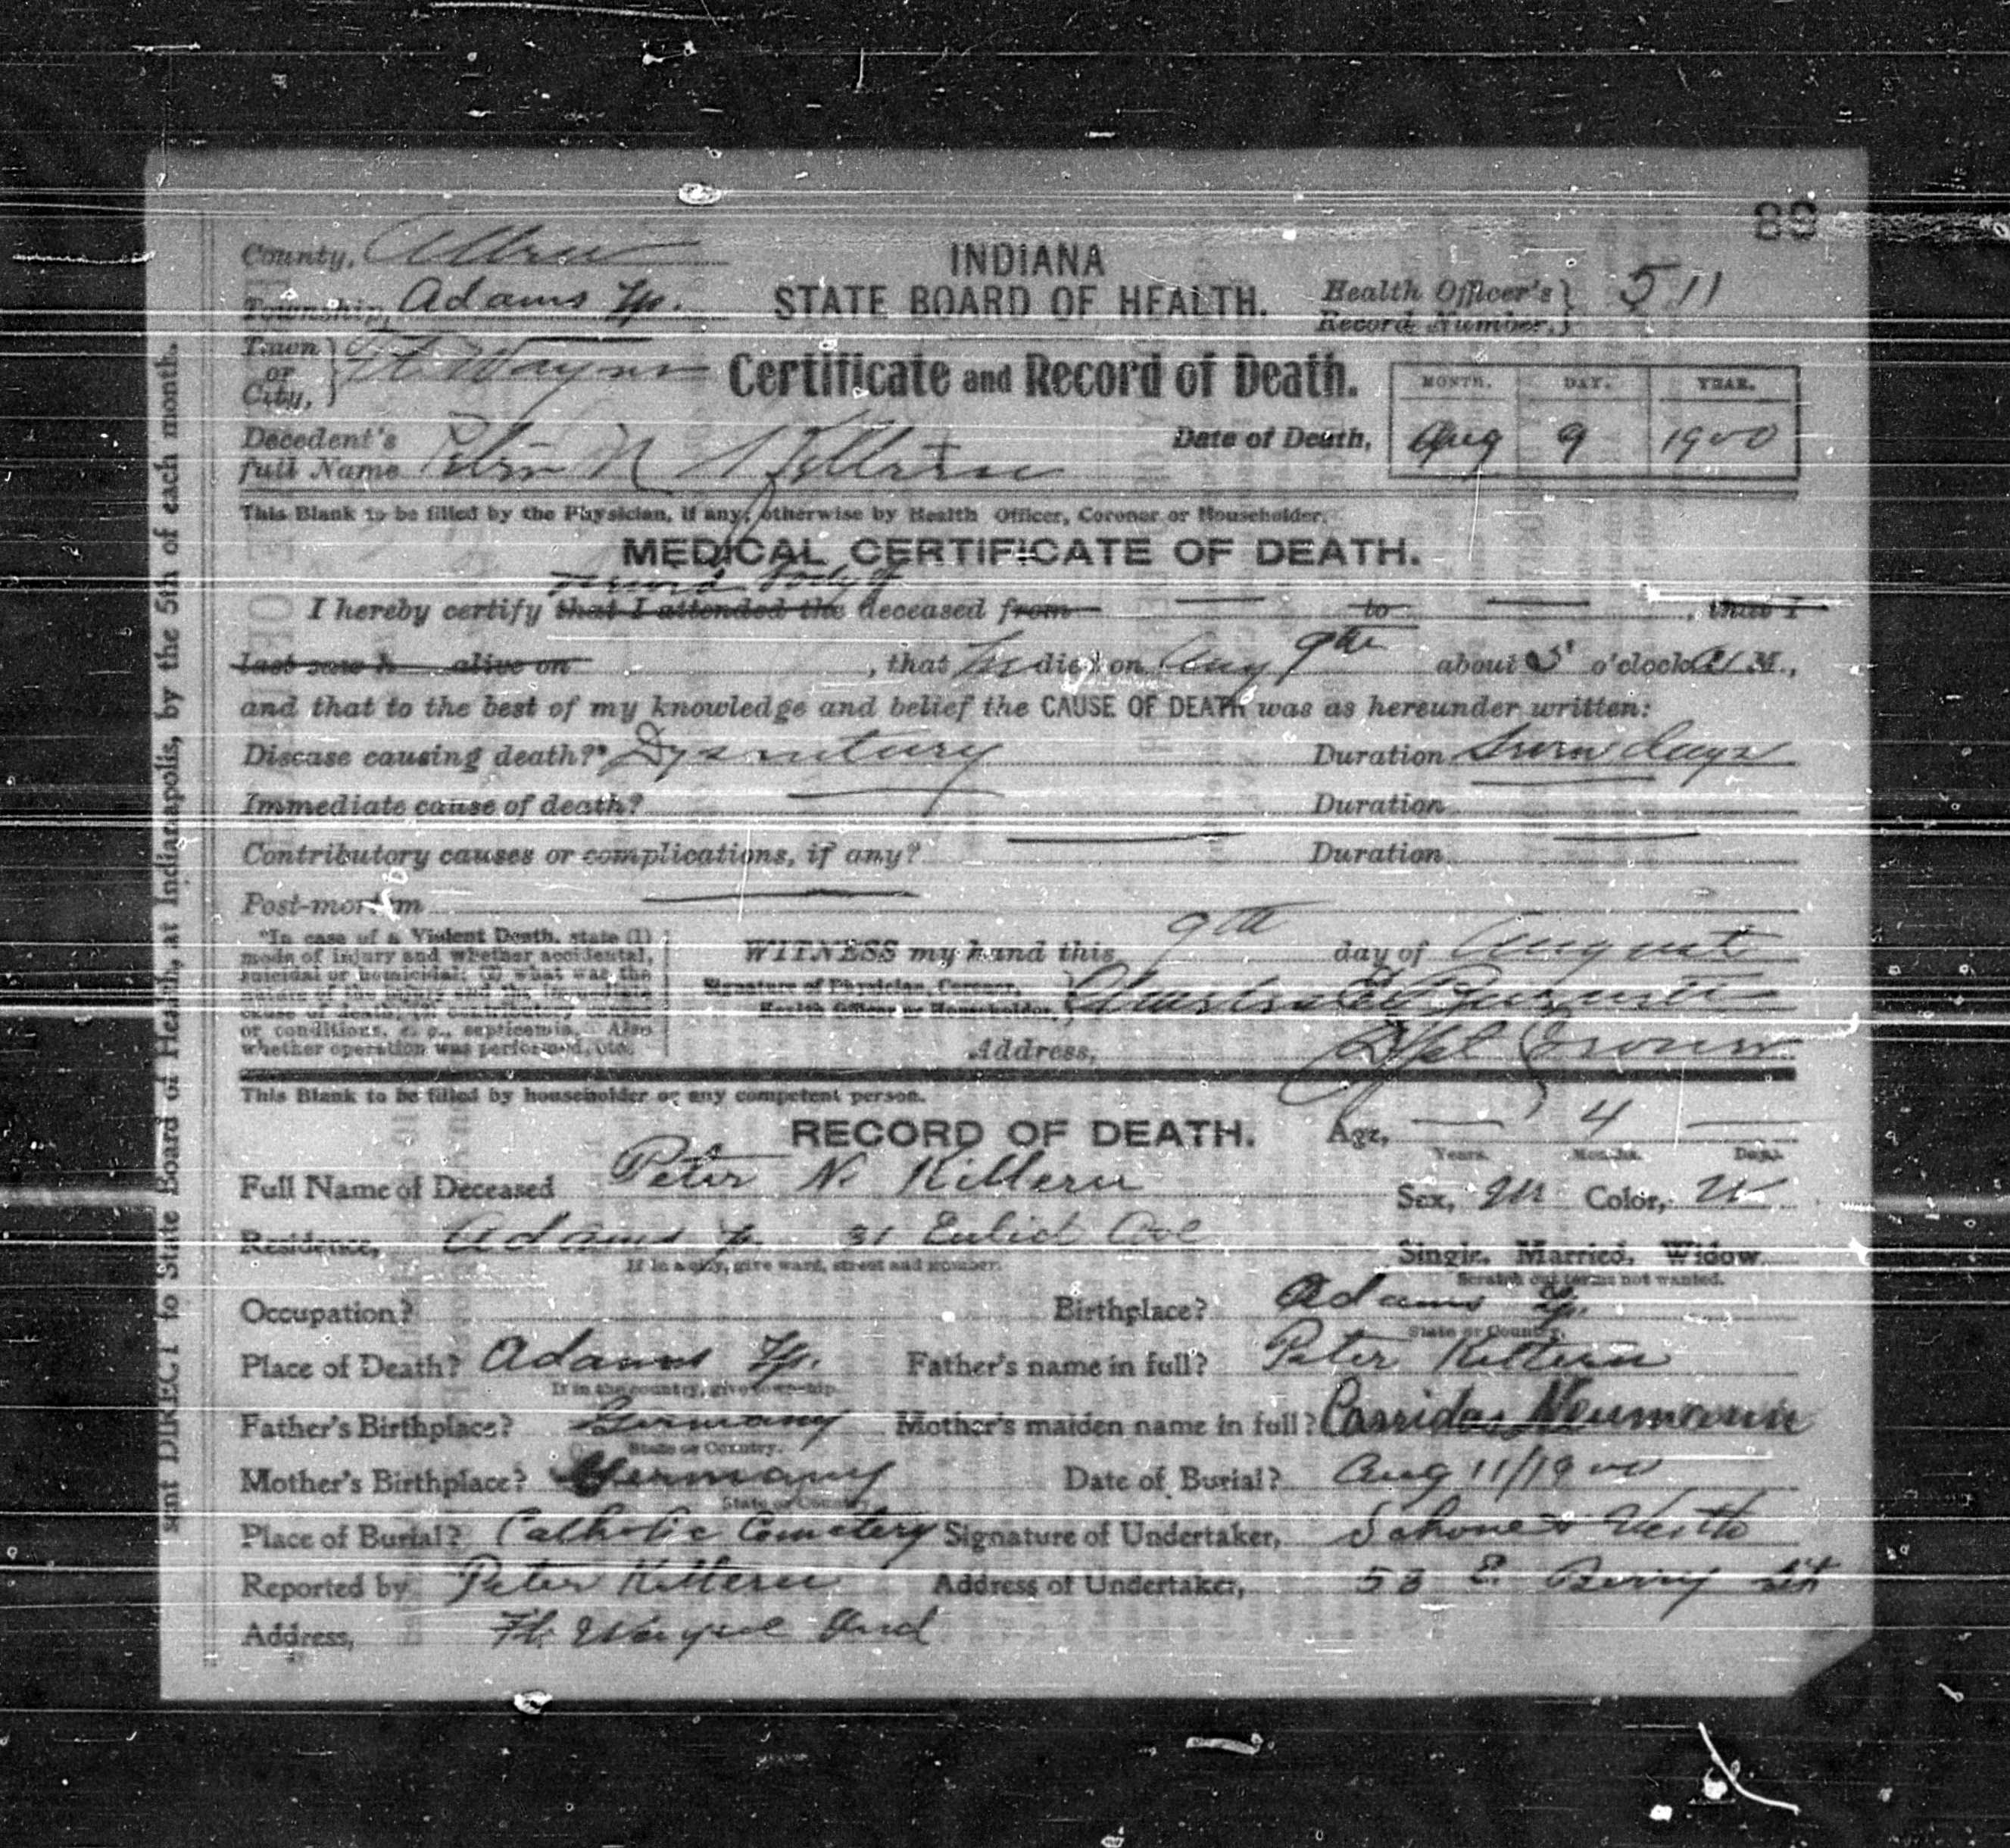 89
County, Allen
INDIANA
STATE BOARD OF HEALTH.
Health Officer's Record Number, 511
Township, Adams Tp.
Town or City, Ft. Wayne
Certificate and Record of Death.
MONTH. DAY. YEAR.
Date of Death, Aug 9 1900
Decedent's full Name Peter N
This Blank to be filled by the Physician, if any, otherwise by Health Officer, Coroner or Householder.
MEDICAL CERTIFICATE OF DEATH.
viewed body of
I hereby certify that I attended the deceased from — to — , that I
last saw h alive on , that he died on Aug 9th about 5 o'clock A M.,
and that to the best of my knowledge and belief the CAUSE OF DEATH was as hereunder written:
Disease causing death?* Dysentery Duration Seven days
Immediate cause of death? — Duration —
Contributory causes or complications, if any? — Duration —
Post-mortem —
*In case of a Violent Death, state (1)
mode of injury and whether accidental,
suicidal or homicidal; (2) what was the
nature of the injury and the immediate
cause of death; (3) contributory causes
or conditions, e. g., septicemia. Also
whether operation was performed, etc.
WITNESS my hand this 9th day of August
Signature of Physician, Coroner, Health Officer or Householder,
Address, Dpt Coroner
This Blank to be filled by householder or any competent person.
RECORD OF DEATH.
Age, — 4 —
Years. Months. Days.
Full Name of Deceased Peter N. Killern
Sex, M Color, W
Residence, Adams Tp 31 Euliet Ave
If in a city, give ward, street and number.
Single, Married, Widow
Scratch out terms not wanted.
Occupation?
Birthplace? Adams Tp.
State or Country.
Place of Death? Adams Tp.
If in the country, give township.
Father's name in full? Peter Killern
Father's Birthplace? Germany
State or Country.
Mother's maiden name in full? Neumann
Mother's Birthplace? Germany
State or Country.
Date of Burial? Aug 11/1900
Place of Burial? Catholic Cemetery
Signature of Undertaker, Schone & Veith
Reported by Peter Killern
Address of Undertaker, 53 E. Berry St
Address, Ft. Wayne Ind
sent DIRECT to State Board of Health, at Indianapolis, by the 5th of each month.